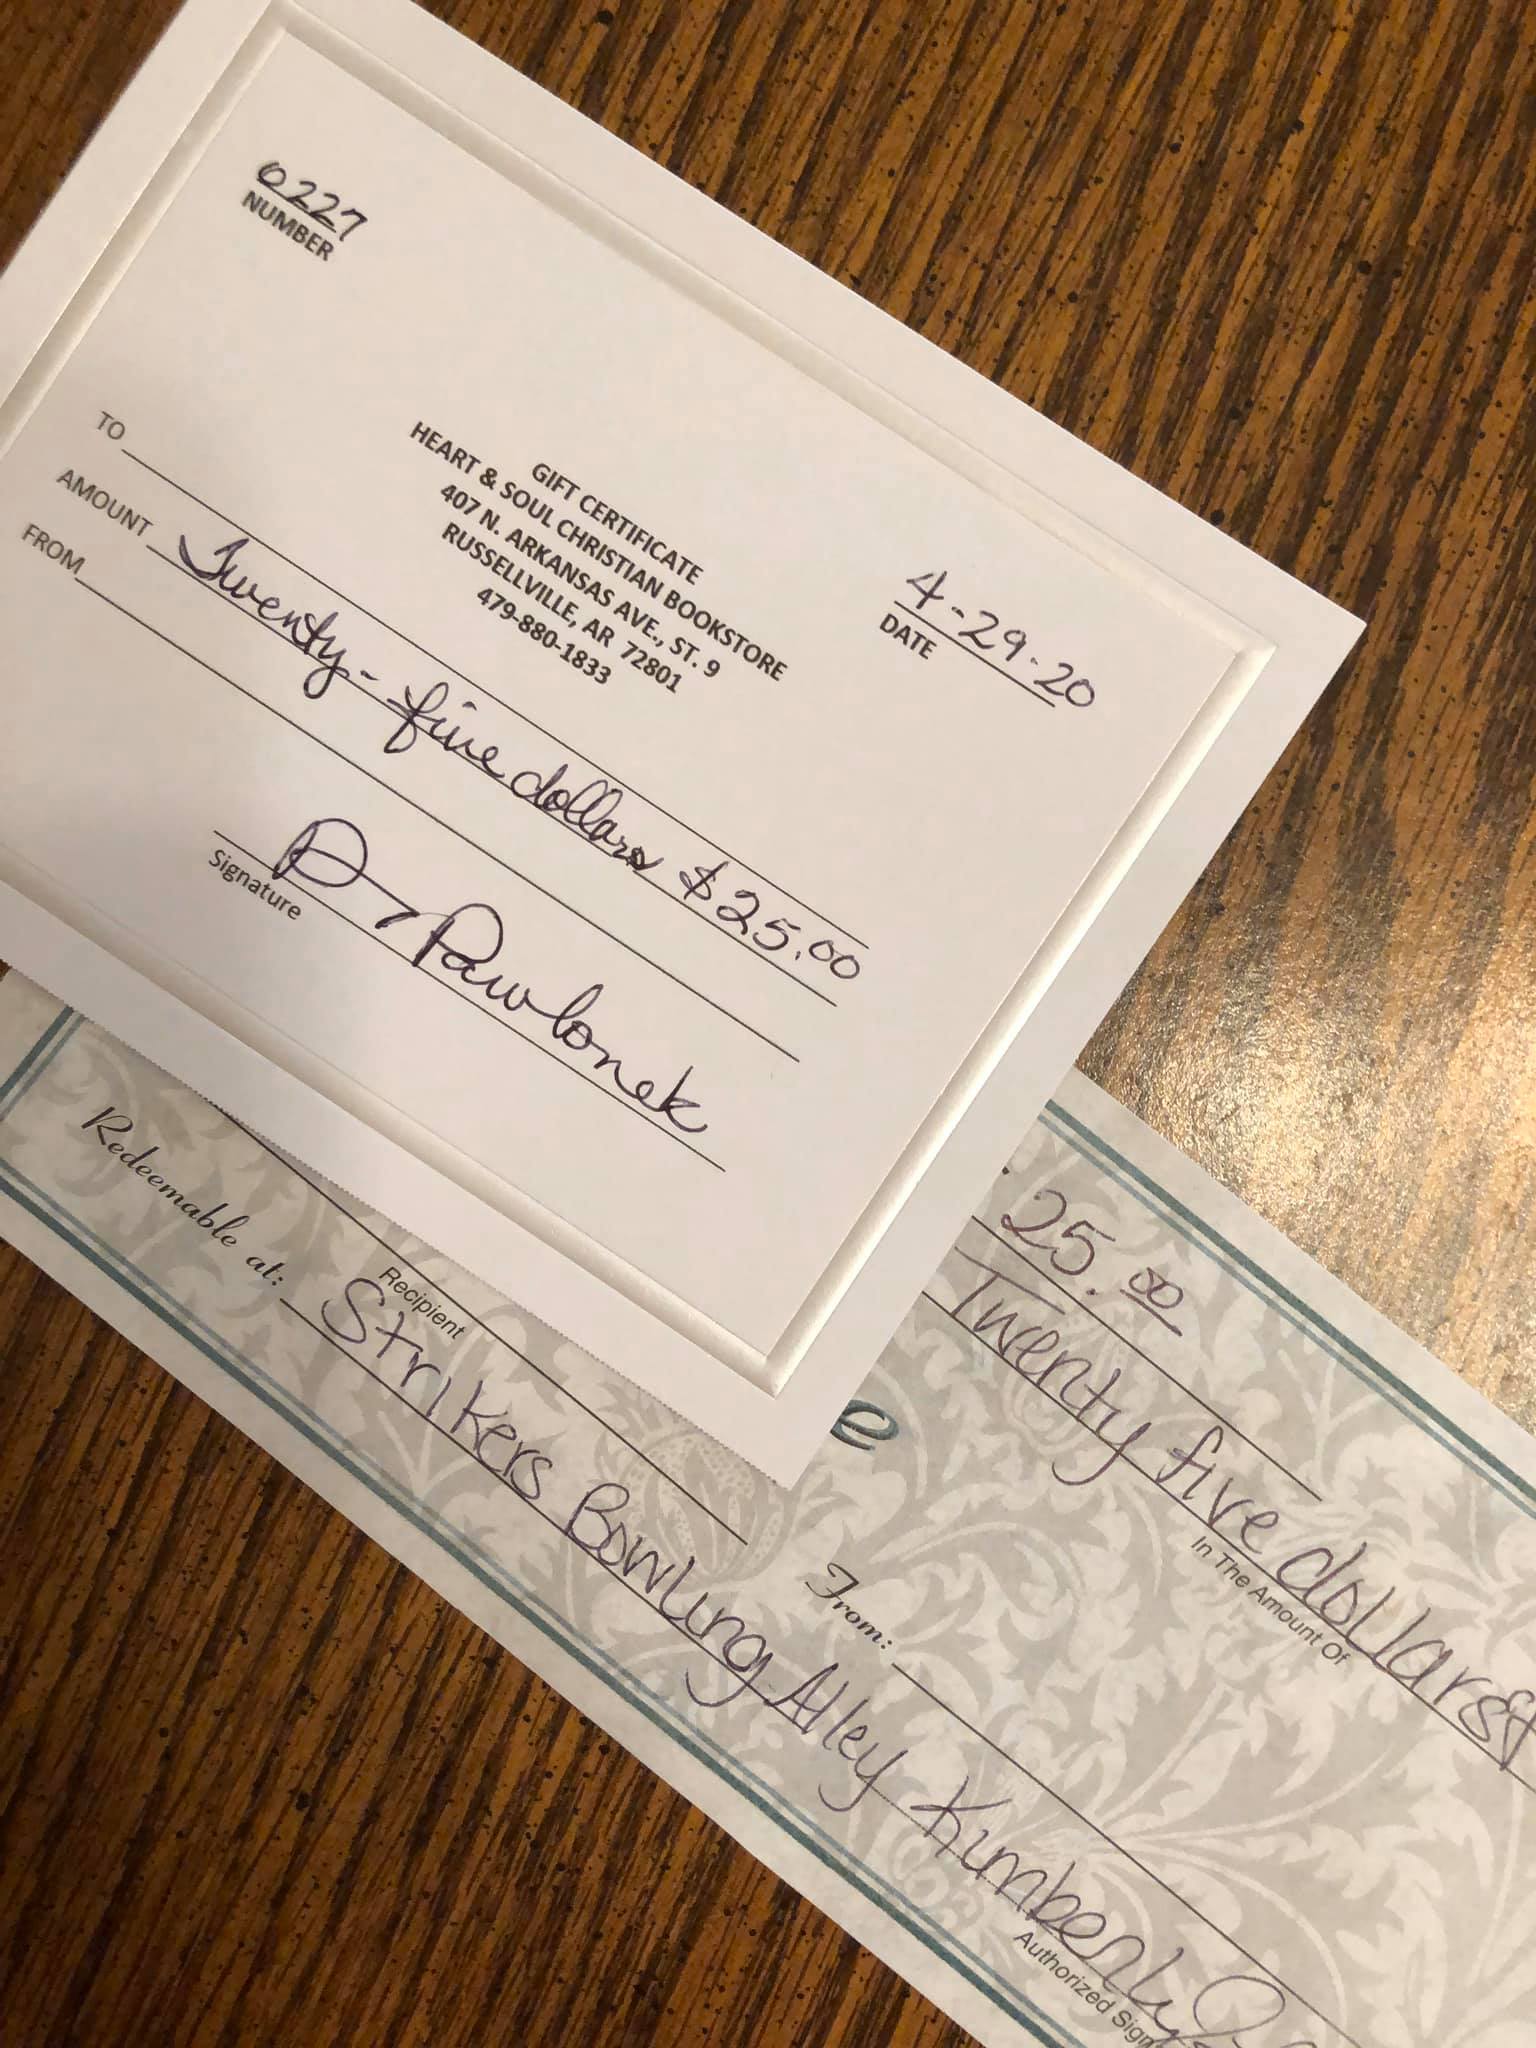 0227
NUMBER
4-29-20
DATE
GIFT CERTIFICATE
HEART & SOUL CHRISTIAN BOOKSTORE
407 N. ARKANSAS AVE., ST. 9
RUSSELLVILLE, AR 72801
479-880-1833
TO
AMOUNT Twenty-five dollars $25.00
FROM
Pawlonek
Signature
25.00
Twenty five dollars
In The Amount Of
Recipient
From:
Redeemable at: Strikers Bowling Alley
Kimberly
Authorized